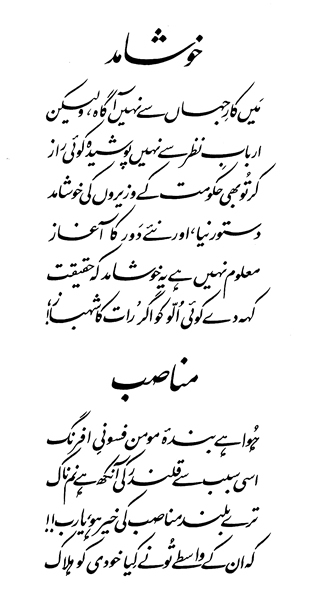 خوشامد
مَیں کارِ جہاں سے نہیں آگاہ، ولیکن
اربابِ نظر سے نہیں پوشیدہ کوئی راز
کر تُو بھی حکومت کے وزیروں کی خوشامد
دستور نیا، اور نئے دَور کا آغاز
معلوم نہیں، ہے یہ خوشامد کہ حقیقت
کہہ دے کوئی اُلّو کو اگر ’رات کا شہباز‘!
مناصب
ہُوا ہے بندۂ مومن فسونیِ افرنگ
اسی سبب سے قلندر کی آنکھ ہے نم ناک
ترے بلند مناصب کی خیر ہو یارب!!
کہ ان کے واسطے تُو نے کِیا خودی کو ہلاک